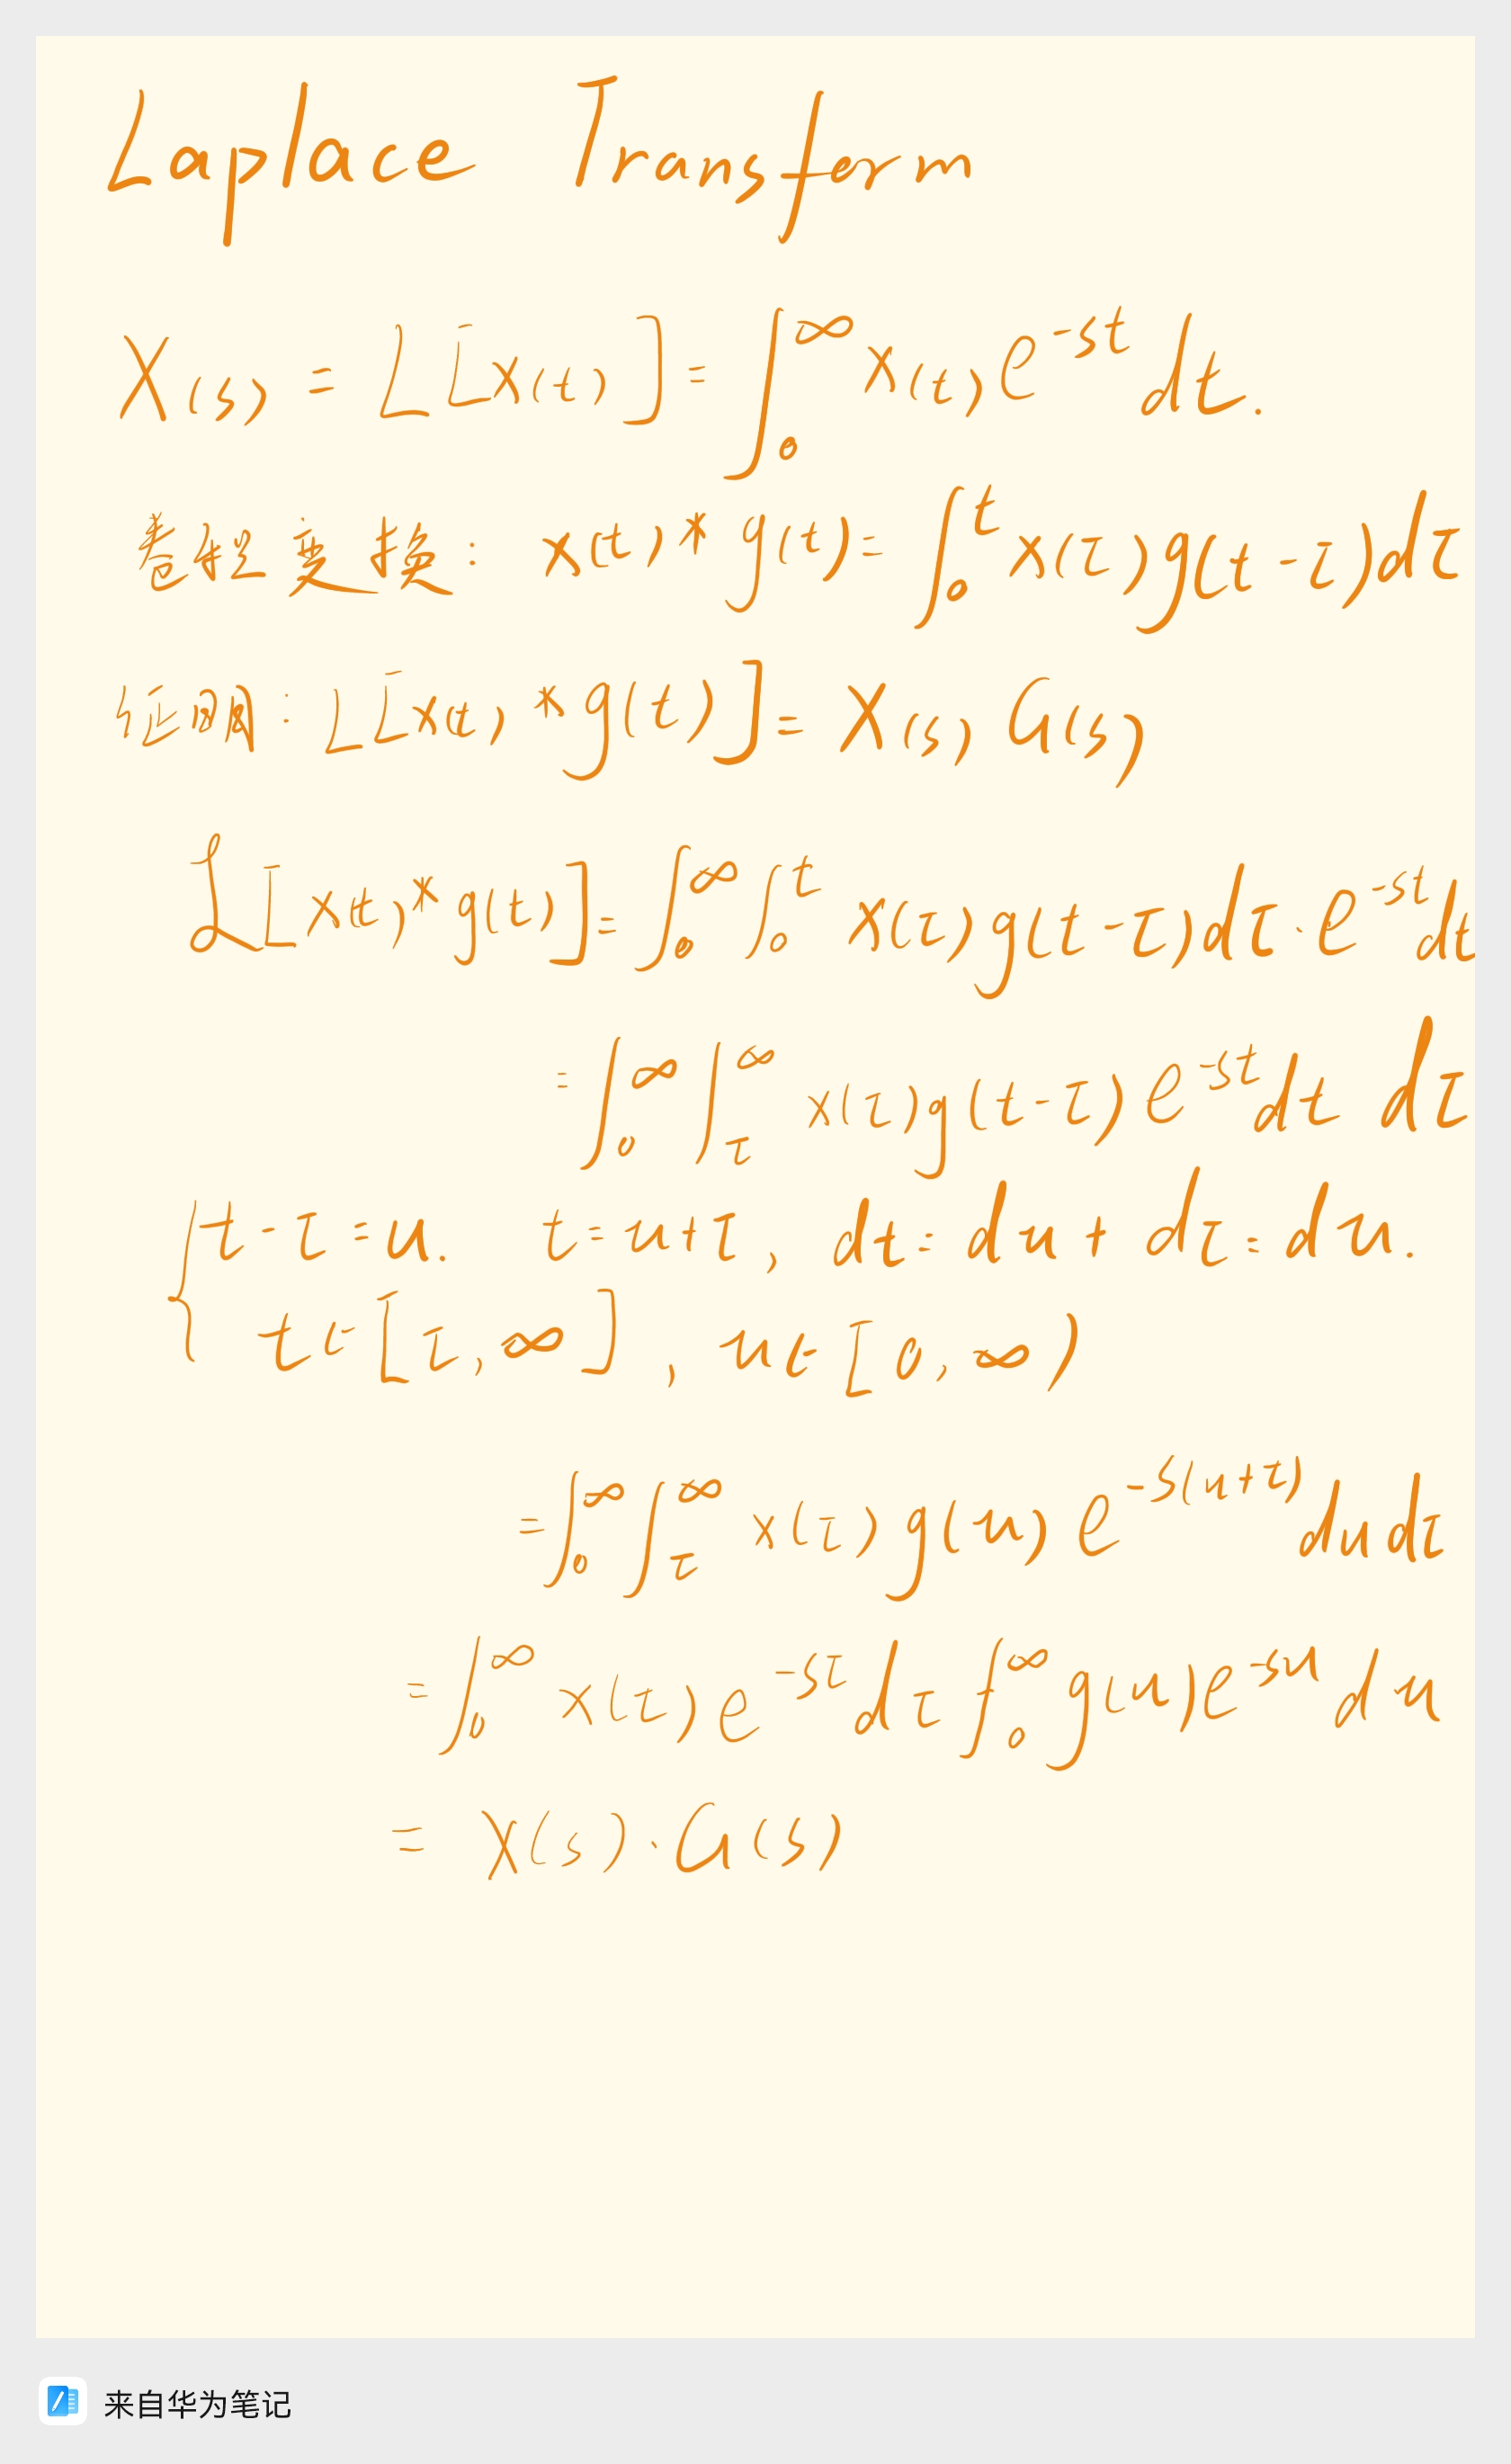 Laplace Transform
X(s) = L[x(t)] = ∫₀^∞ x(t)e^{-st}dt.
卷积变换: x(t)*g(t) = ∫₀^t x(τ)g(t-τ)dτ
证明: L[x(t)*g(t)] = X(s)G(s)
L[x(t)*g(t)] = ∫₀^∞ ∫₀^t x(τ)g(t-τ)dτ·e^{-st}dt
= ∫₀^∞ ∫_τ^∞ x(τ)g(t-τ)e^{-st}dt dτ
{ t-τ=u. t=u+τ, dt=du+dτ=du.
t∈[τ,∞], u∈[0,∞)
= ∫₀^∞ ∫_τ^∞ x(τ)g(u)e^{-s(u+τ)}dudτ
= ∫₀^∞ x(τ)e^{-sτ}dτ ∫₀^∞ g(u)e^{-su}du
= X(s)·G(s)
来自华为笔记